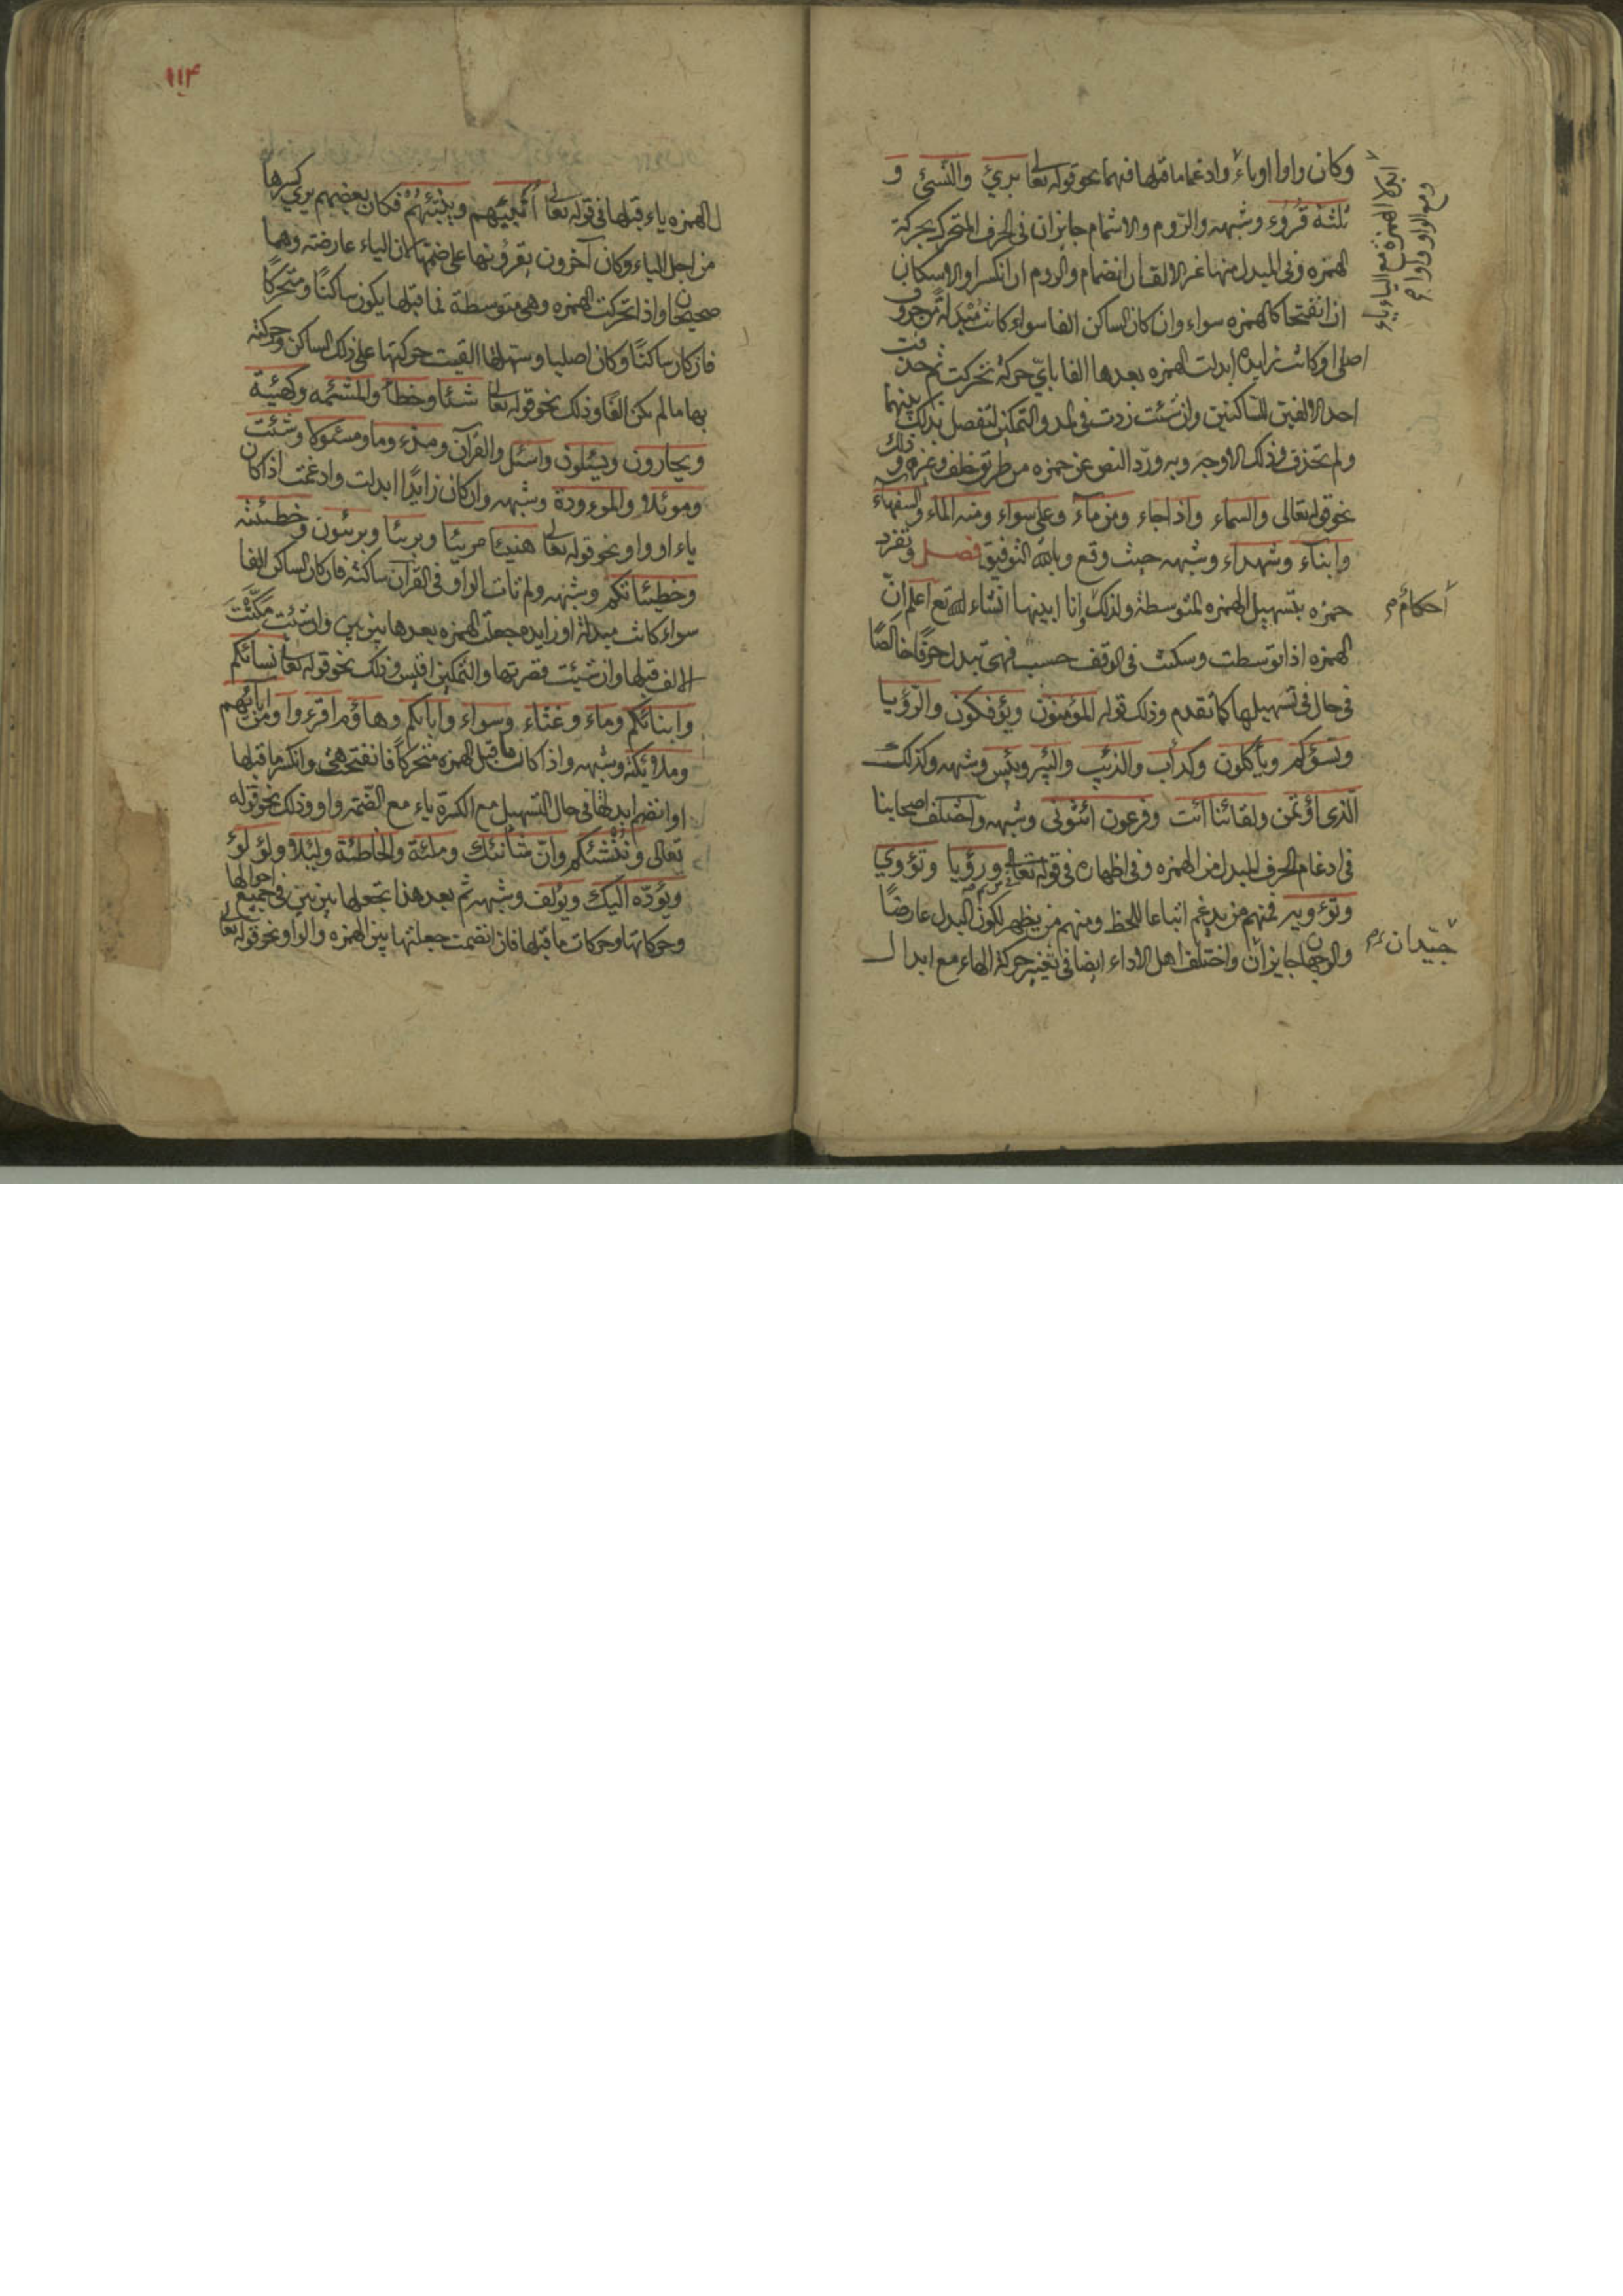 وكان واوا او ياء وادغما ما قبلها فيهما نحو قوله تعالى بريء والنسيء و
ثلثة قروء وشبهه والروم والاشمام جايزان في الحرف المتحرك بحركة
الهمزه وفي المبدل منها غير الالف ان انضما والروم ان انكسرا والاسكان
ان انفتحا كالهمزه سواء وان كان الساكن الفا سواء كانت مبدلة من حرف
اصلي او كانت زايده ابدلت الهمزه بعدها الفا باي حركة تحركت ثم حذفت
احد الالفين للساكنين وان شئت زدت في المد والتمكين لتفصل بذلك بينهما
ولم تحذف وذلك الاوجه وبه ورد النص عن حمزه من طريق خلف وغيره وذلك
نحو قوله تعالى والسماء واذا جاء ومن ماء وعلى سواء ومنه الماء والسفهاء
وابناء وشهداء وشبهه حيث وقع وبالله التوفيق فصل وتفرد
حمزه بتسهيل الهمزه المتوسطة ولذلك انا ابينها انشاء الله تع اعلم ان
الهمزه اذا توسطت وسكنت في الوقف حسب فهي تبدل حرفا خالصا
في حال تسهيلها كما تقدم وذلك قوله المؤمنون ويؤفكون والرؤيا
وتسؤكم وياكلون وكداب والذئب والبير وبئس وشبهه وكذلك
الذي اؤتمن ولقائنا ائت وفرعون ائتوني وشبهه واختلف اصحابنا
في ادغام الحرف المبدل من الهمزه وفي اظهاره في قوله تعالى ورؤيا وتؤوي
وتؤويه فمنهم من يدغم اتباعا للخط ومنهم من يظهر لكون البدل عارضا
والوجهان جايزان واختلف اهل الاداء ايضا في تغيير حركة الهاء مع ابدال
ابدلا الهمزة مع الياء ياء
ومع الواو واوا
احكام
جيدان
١١۴
الهمزه ياء قبلها في قوله تعالى انبئهم وينبئهم فكان بعضهم يري كسرها
من اجل الياء وكان آخرون يقرؤنها على ضمتها لان الياء عارضة وهما
صحيحان واذا تحركت الهمزه وهي متوسطة فما قبلها يكون ساكنا ومتحركا
فان كان ساكنا وكان اصليا وسهلتها القيت حركتها على ذلك الساكن وحركته
بها ما لم يكن الفا وذلك نحو قوله تعالى شئا وخطا والمشئمه وكهيئة
ويجارون ويسئلون واسئل والقران ومذءوما ومسئولا وشئت
وموئلا والموءودة وشبهه وان كان زايدا ابدلت وادغمت اذا كان
ياء او واوا نحو قوله تعالى هنيئا مريئا وبريئا وبريئون وخطيئته
وخطيئاتكم وشبهه ولم تات الواو في القرآن ساكنة فان كان الساكن الفا
سواء كانت مبدلة او زايده جعلت الهمزه بعدها بين بين وان شئت مكنت
الالف قبلها وان شئت قصرتها والتمكين اقيس وذلك نحو قوله تعالى نسائكم
وابنائكم وماء وغثاء وسواء واباءكم وهاؤم اقرءوا ومن آبائهم
وملائكته وشبهه واذا كان ما قبل الهمزه متحركا فان انفتحت هي وانكسر ما قبلها
او انضم ابدلتها في حال التسهيل مع الكسرة ياء مع الضمة واوا وذلك نحو قوله
تعالى وننشئكم وان شانئك وملئت والخاطئة وليئلا ولؤلؤ
ويؤده اليك ويؤلف وشبهه ثم بعد هذا تجعلها بين بين في جميع احوالها
وحركاتها وحركات ما قبلها فان انضمت جعلتها بين الهمزه والواو نحو قوله تعالى